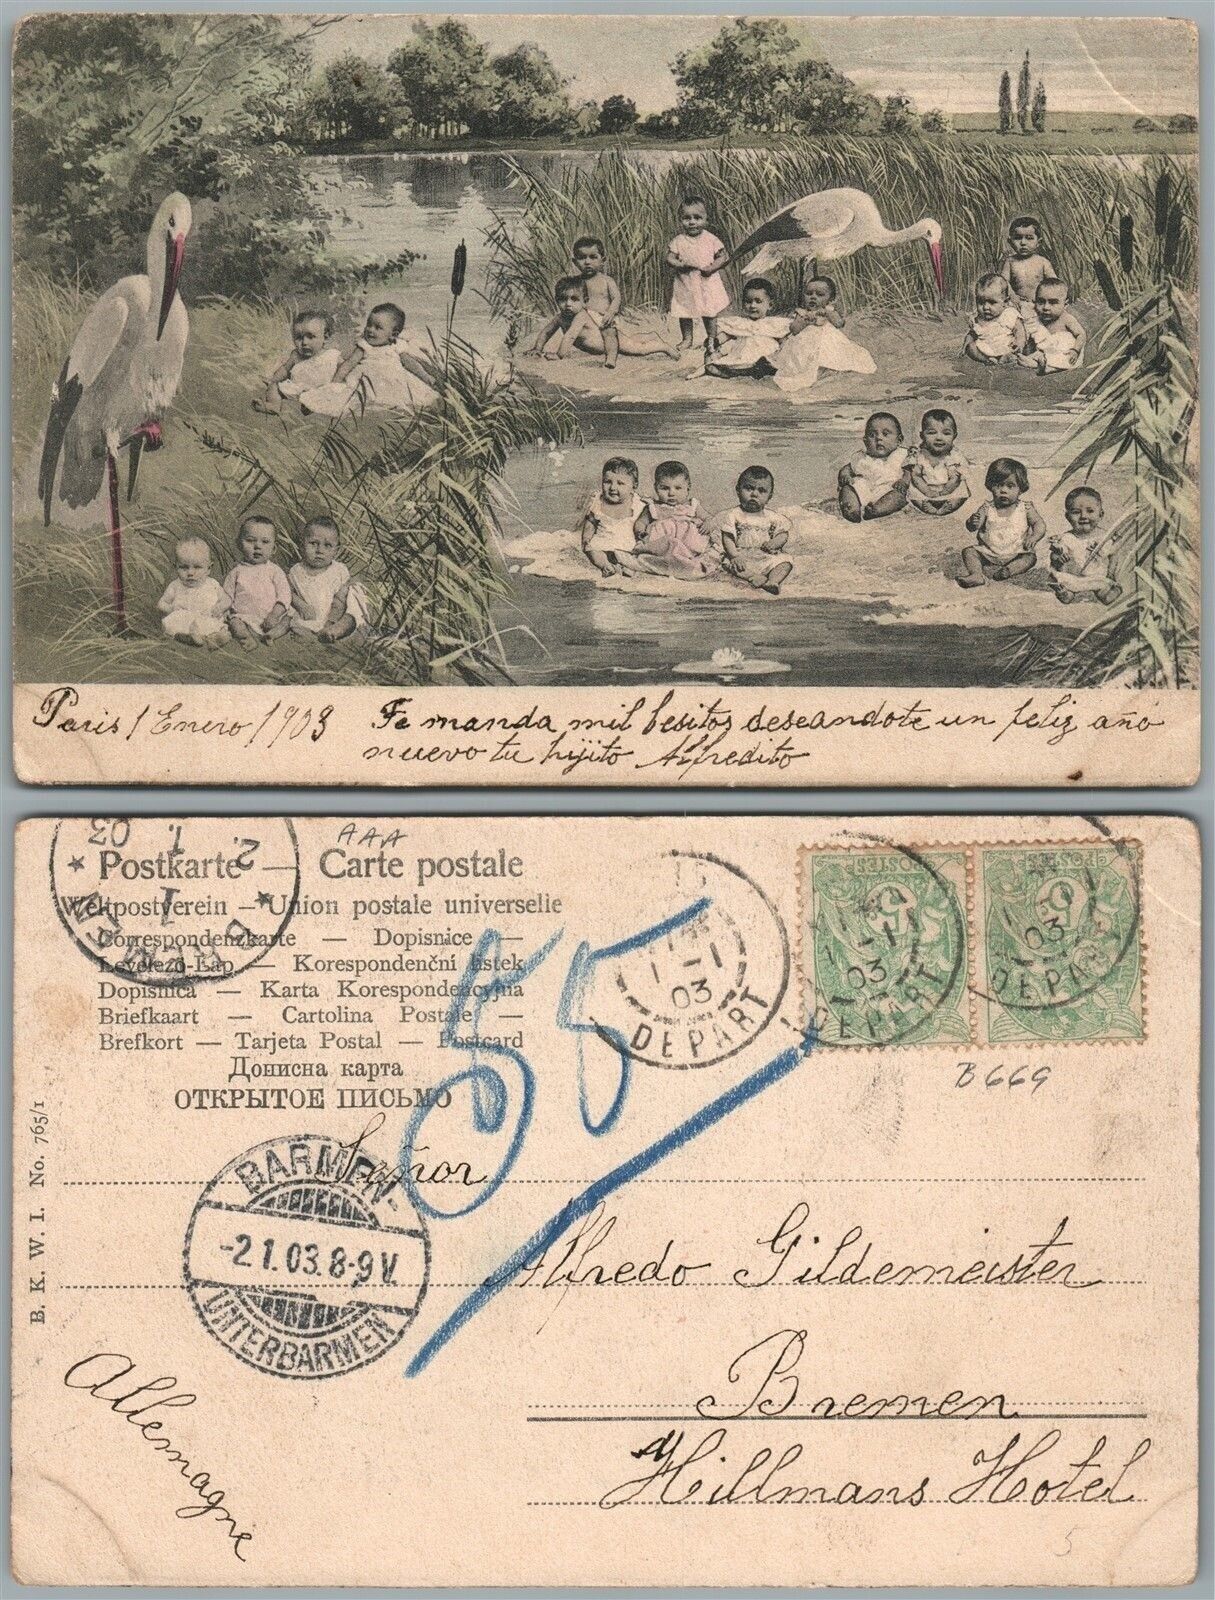 Paris 1 Enero 1903 Te manda mil besitos deseandote un feliz año
nuevo tu hijito Alfredito
AAA
Postkarte — Carte postale
Weltpostverein — Union postale universelle
Correspondenzkarte — Dopisnice —
Levelező-Lap — Korespondenční lístek
Dopisnica — Karta Korespondencyjna
Briefkaart — Cartolina Postale —
Brefkort — Tarjeta Postal — Postcard
Дописна карта
ОТКРЫТОЕ ПИСЬМО
B. K. W. I. No. 765/1
2. 1. 03
1-1
03
DEPART
POSTES
5
1-1
03
DEPART
POSTES
5
03
DEPART
B 669
BARMEN-
-2.1.03.8-9V.
UNTERBARMEN
Señor
Alfredo Gildemeister
Bremen
Hillmans Hotel
Allemagne
5